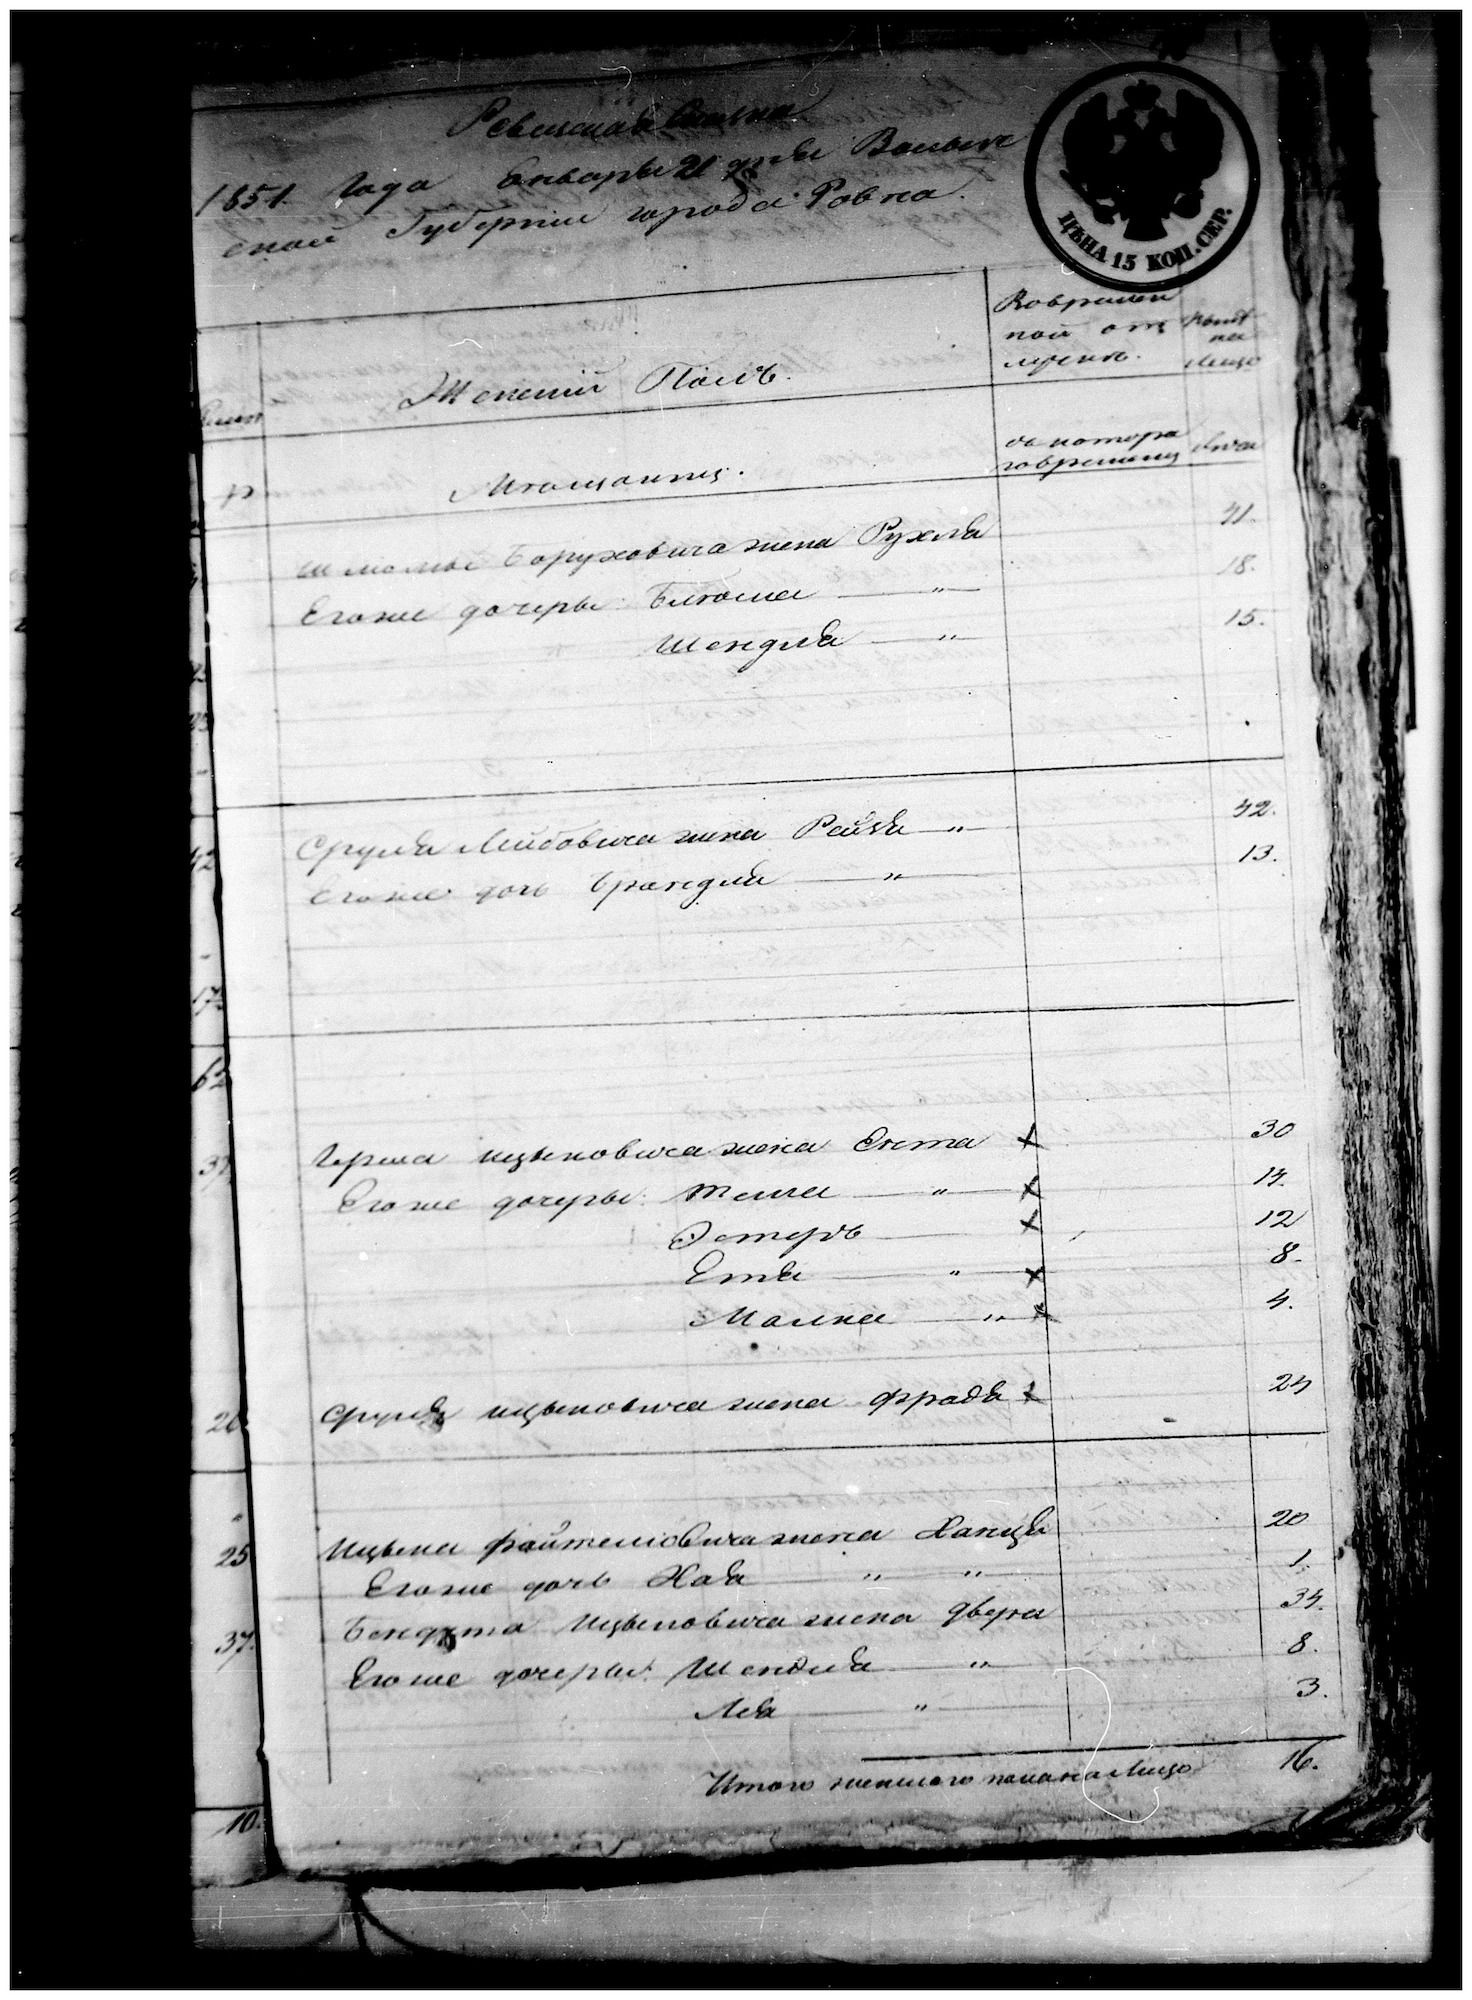 Ревизская Сказка
1851. Года Января 21 дня Волын
ской Губернии города Ровна.
ЦѢНА 15 КОП. СЕР.
Женский Полъ.
Вовремен
ной от
лучкѣ.
Нынѣ
на
Лицо
Мѣщанки.
съ котора
го времени
Лѣта
Шломы Боруховича жена Рухля 41.
Егоже дочеры: Блюма " 18.
Шендля " 15.
Сруля Лейбовича жена Рейзя " 42.
Егоже дочь Брандля " 13.
42
17
62
Герша Ицьковича жена Ента 30
37
Егоже дочеры: " 14.
Эстеръ 12
Етя " 8.
Малка " 4.
26
Сруля Ицьковича жена Фрадя 24
25
Ицька Файтелювича жена Ханця 20
Егоже дочь Хая " " 1.
37.
Бендета Ицьковича жена Двера 34.
Егоже дочеры: Шендля " 8.
Лея " 3.
Итого женского пола на Лицо 16.
10.